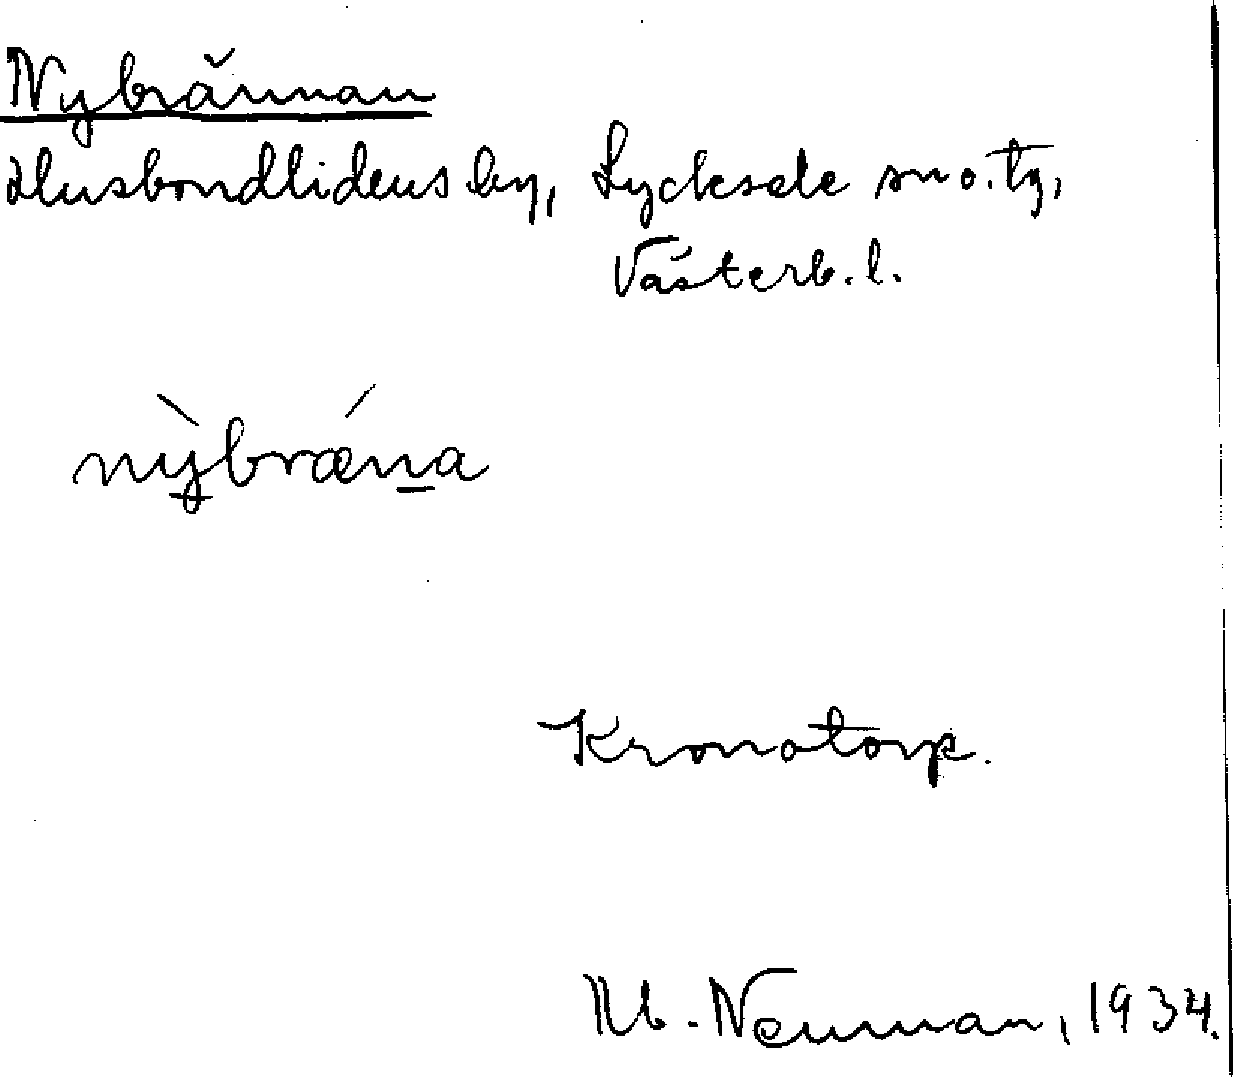 Nybrännan
Husbondlidens by, Lycksele sn o. tg,
Västerb. l.
nỳbrǽna
Kronotorp.
M. Neuman, 1934.